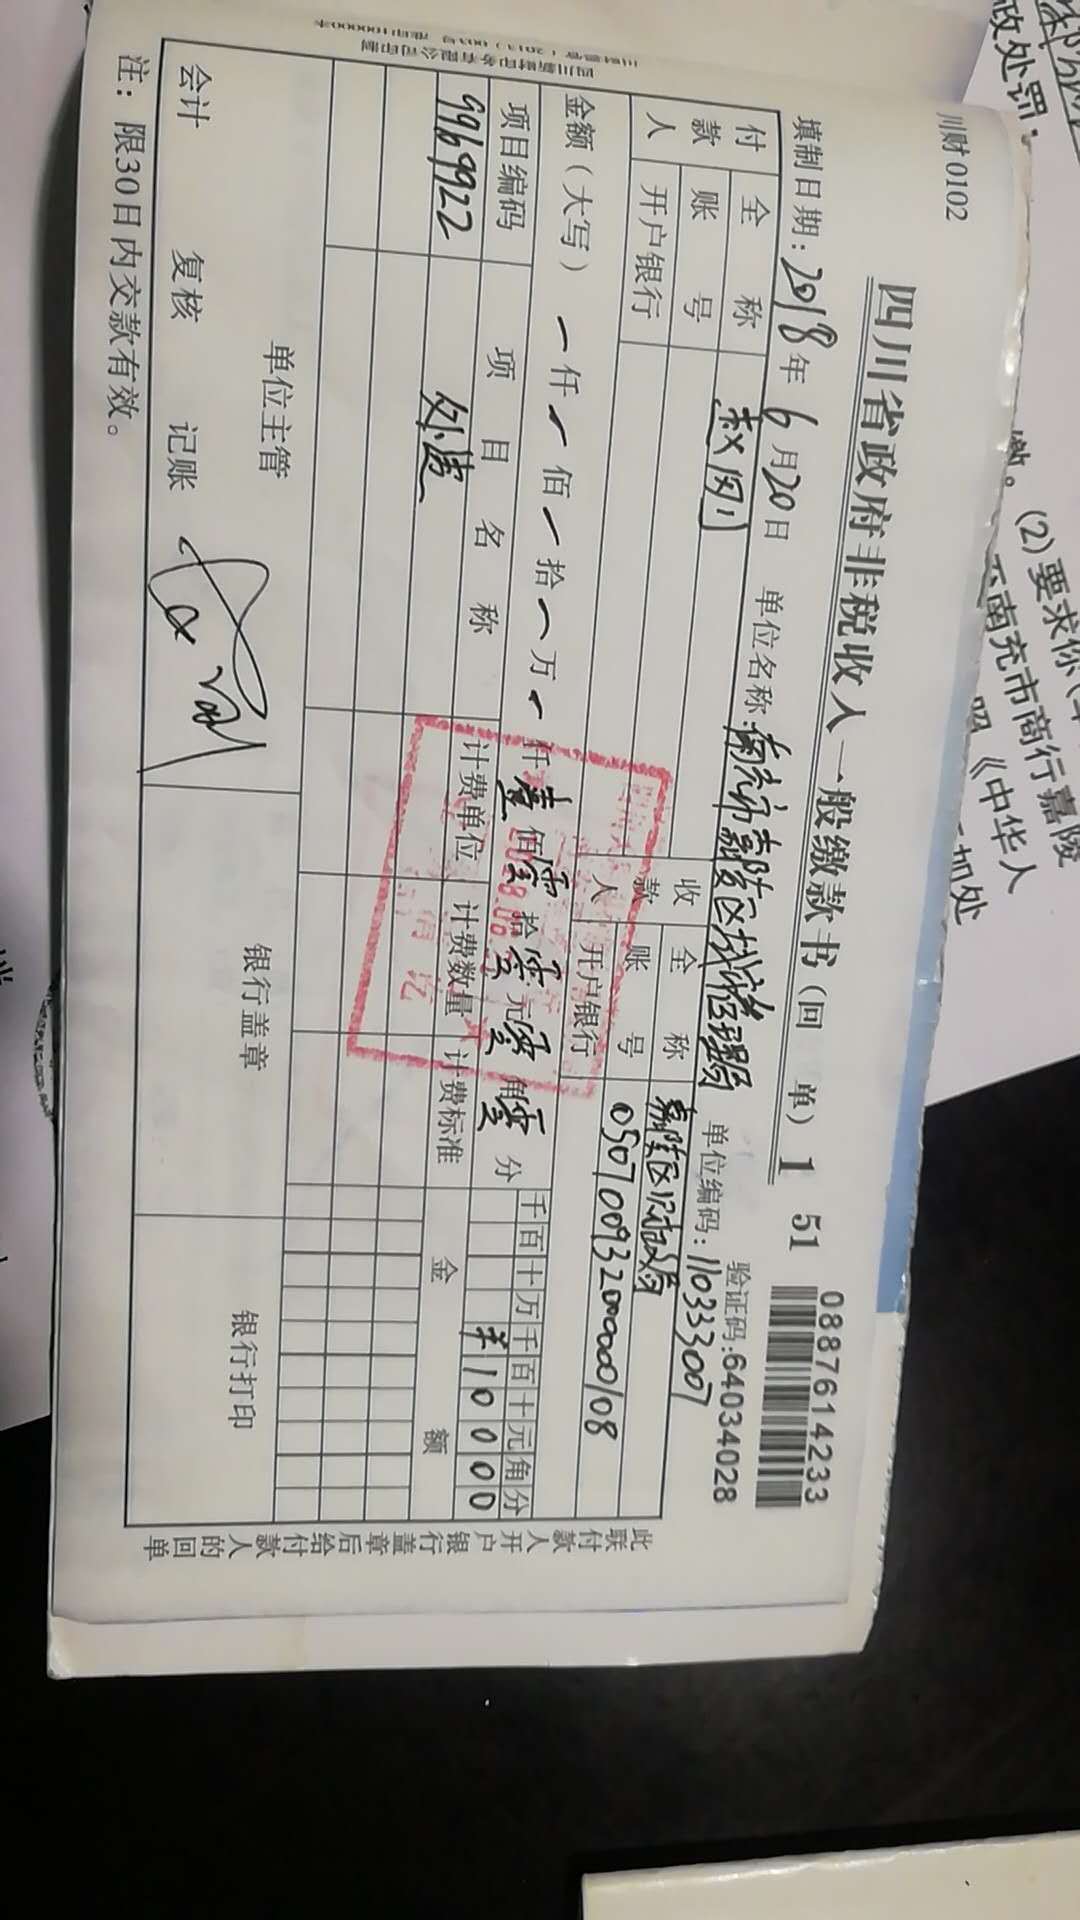 川财0102
四川省政府非税收入一般缴款书(回 单) 1 51
088761614233
验证码:64034028
填制日期:2018年6月20日 单位名称:南充市嘉陵区 单位编码:11033007
付款人 全称 赵刚 收款人 全称 嘉陵区财政局
账号 账号 05070093200000108
开户银行 开户银行
金额(大写) 仟 佰 拾 万 仟壹佰零拾零元零角零分
项目编码 项目名称 计费单位 计费数量 计费标准 金额
千百十万千百十元角分
9969922 ¥10000
单位主管
会计 复核 记账
银行盖章 银行打印
注:限30日内交款有效。
此联付款人开户银行盖章后给付款人的回单
四川新财印务有限公司印制
政处罚,
缴。(2)要求你(
南充市商行嘉陵
《中华人
加处